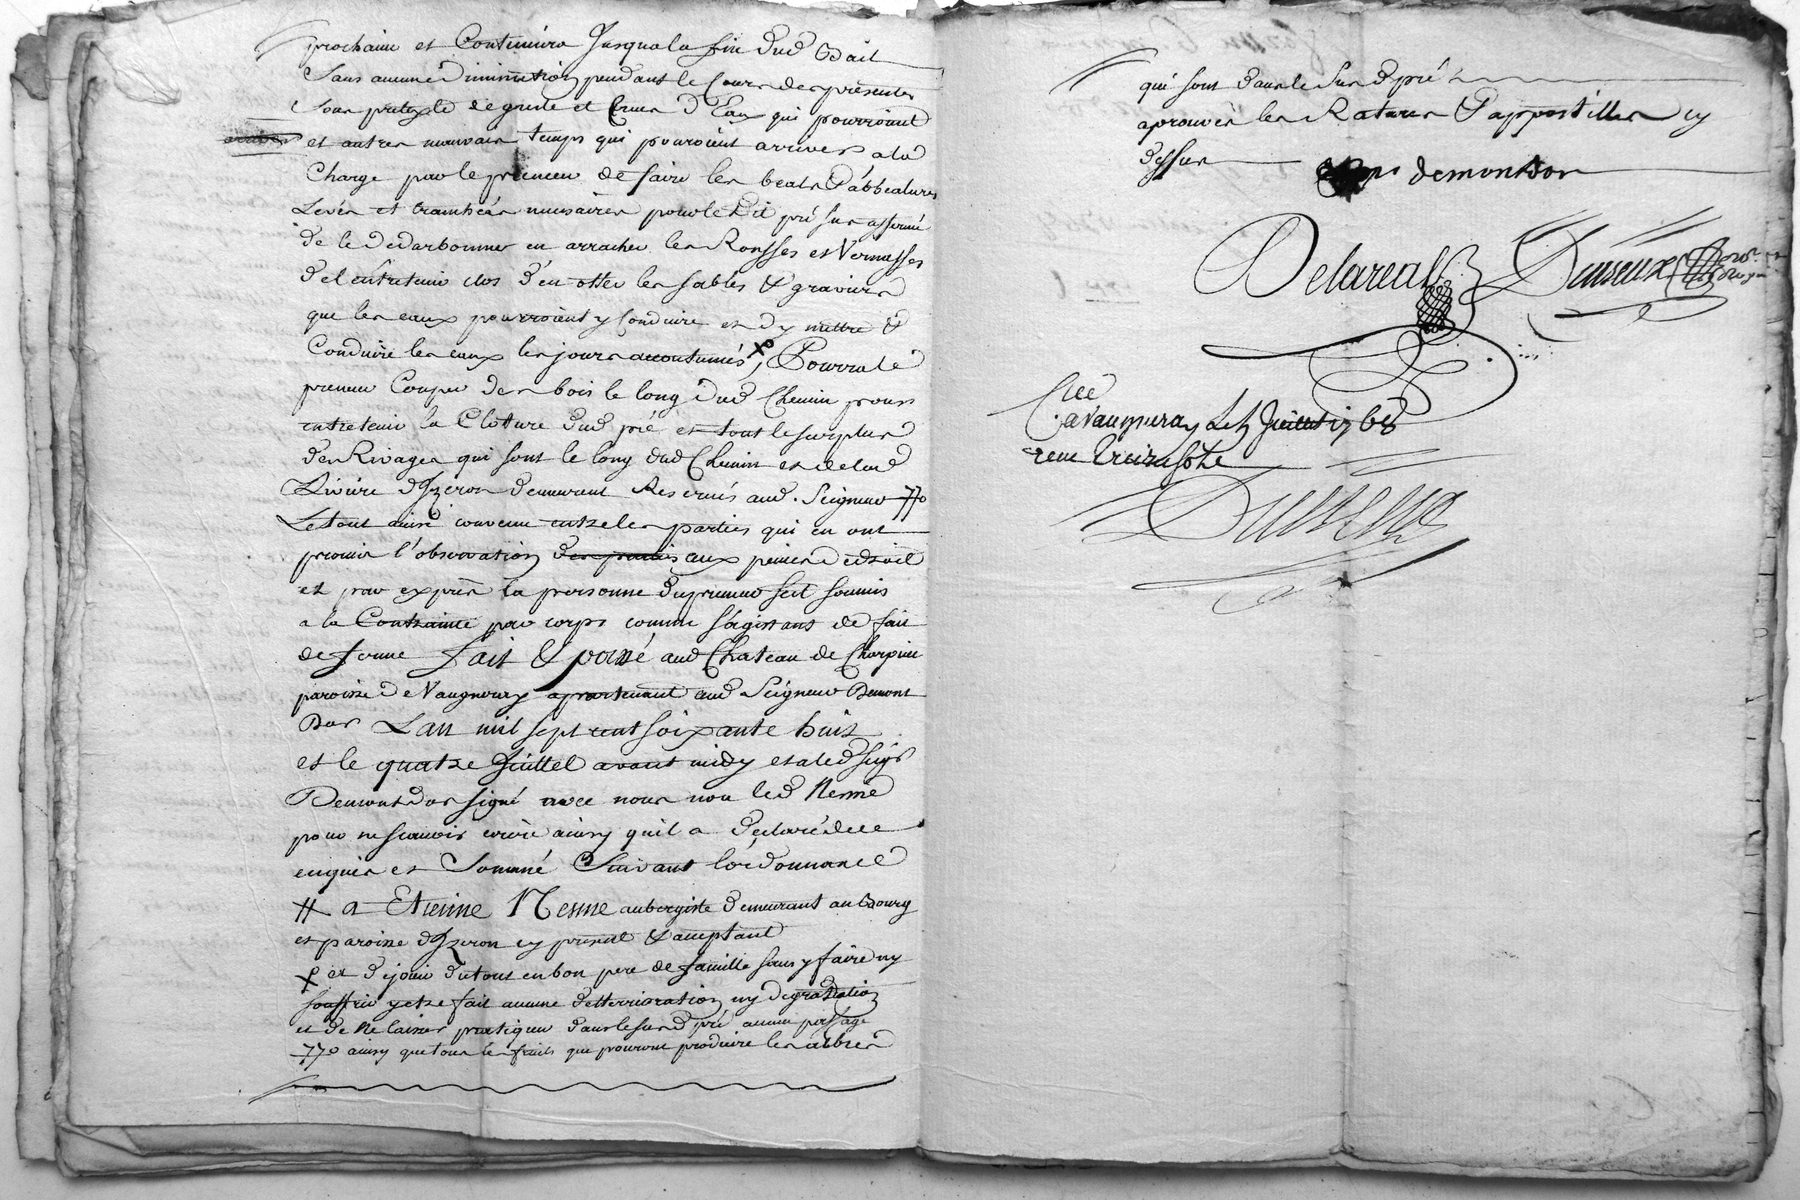 prochaine et Continuera Jusquala fin dud Bail
Sans aucune Diminution pendant le Cours des presentes
Sous pretexte de grele et Crues d'Eau qui pourroient
et autres mauvais temps qui pouroient arriver a la
Charge par le preneur de faire les beals & abbealures
Levées et tranchées necessaires pour led pré sus affermé
de le dedarbonner en arracher les Ronsses et Vernasses
de l'entretenir clos d'en otter les sables & graviers
que les eaux pourroient y Conduire et d'y mettre &
Conduire les eaux les jours accoutumés, Pourra le
preneur Couper des bois le long dud Chemin pour
entretenir la Cloture dud pré et tout le surplus
des Rivages qui sont le long dud Chemin et de lad
Riviere d'Izeron demeurent Reservés aud. Seigneur
Le tout ainsi convenu entre les parties qui en ont
promis l'observation aux peines de droit
et par exprès la personne du preneur soit soumis
a la Contrainte par corps comme s'agissant de fait
de ferme fait & passé aud Chateau de Charpieu
paroisse de Vaugneray apartenant aud Seigneur Demont
Dor L'an mil sept cent soixante huit
et le quatre Juillet avant midy et a led Seigr
Demontdor signé avec nous non led Nesme
pour ne scavoir écrire ainsy qu'il a declaré de ce
enquis et Sommé Suivant l'ordonnance
# a Etienne Nesme aubergiste demeurant au bourg
et paroisse d'Izeron cy present & acceptant
et de jouir du tout en bon pere de famille sans y faire ny
souffrir y etre fait aucune detterrioration ny degradation
et de ne laisser pratiquer dans le susd pré aucun passage
ainsy que tous les fruits que pourront produire les arbres
qui sont dans le susd pré
aprouvés les Ratures & appostilles cy
dessus
demontdor
Delareal Dusseux
Clé
a Vaugneray Le Juillet 1768
receu treize sols